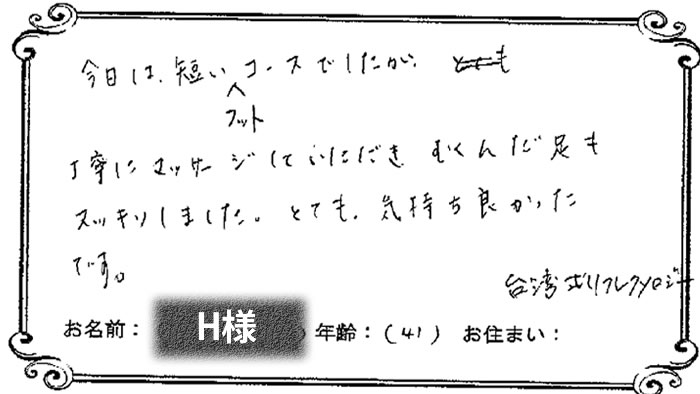 今日は、短いフットコースでしたが、
丁寧にマッサージしていただき むくんだ足も
スッキリしました。とても、気持ち良かった
です。
台湾式リフレクソロジー
お名前： H様 年齢：(41) お住まい：